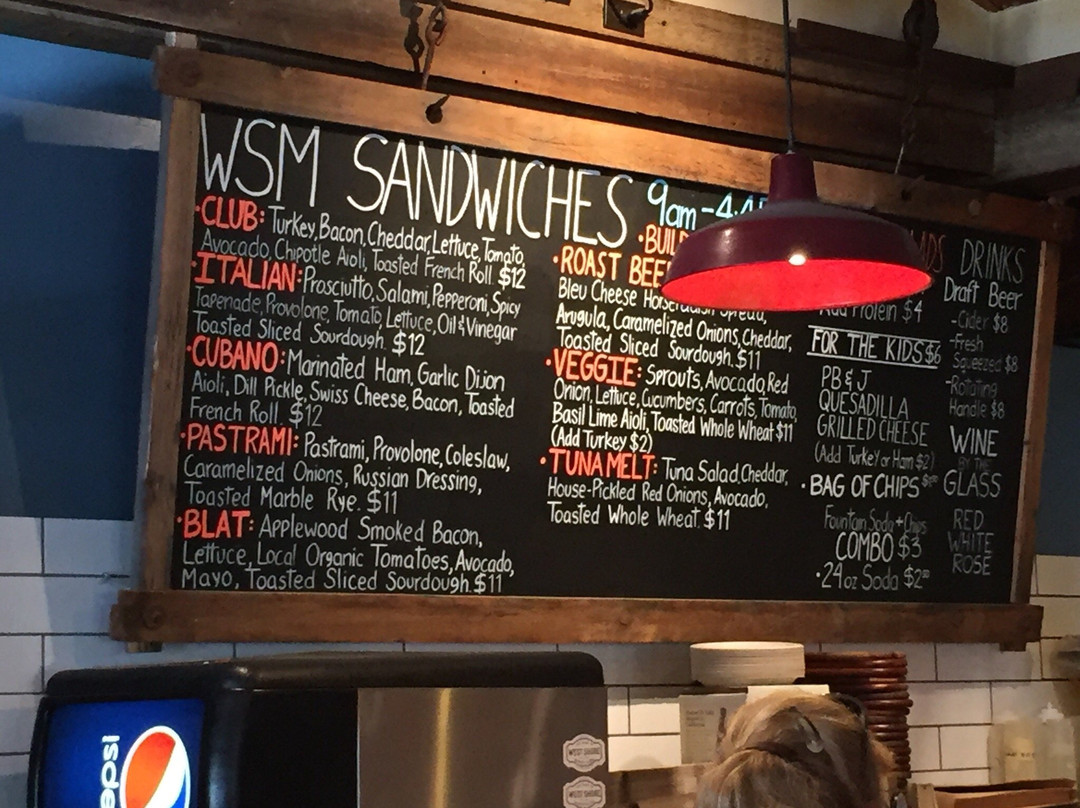 WSM SANDWICHES 9am-4:4
•CLUB: Turkey, Bacon, Cheddar, Lettuce, Tomato,
Avocado, Chipotle Aioli, Toasted French Roll. $12
•ITALIAN: Prosciutto, Salami, Pepperoni, Spicy
Tapenade, Provolone, Tomato, Lettuce, Oil & Vinegar
Toasted Sliced Sourdough. $12
•CUBANO: Marinated Ham, Garlic Dijon
Aioli, Dill Pickle, Swiss Cheese, Bacon, Toasted
French Roll. $12
•PASTRAMI: Pastrami, Provolone, Coleslaw,
Caramelized Onions, Russian Dressing,
Toasted Marble Rye. $11
•BLAT: Applewood Smoked Bacon,
Lettuce, Local Organic Tomatoes, Avocado,
Mayo, Toasted Sliced Sourdough. $11
•BUILD
•ROAST BEEF
Bleu Cheese Horseradish Spread,
Arugula, Caramelized Onions, Cheddar,
Toasted Sliced Sourdough. $11
•VEGGIE: Sprouts, Avocado, Red
Onion, Lettuce, Cucumbers, Carrots, Tomato,
Basil Lime Aioli, Toasted Whole Wheat $11
(Add Turkey $2)
•TUNA MELT: Tuna Salad, Cheddar,
House-Pickled Red Onions, Avocado,
Toasted Whole Wheat. $11
Add Protein $4
FOR THE KIDS $6
PB & J
QUESADILLA
GRILLED CHEESE
(Add Turkey or Ham $2)
•BAG OF CHIPS
Fountain Soda + Chips
COMBO $3
•24oz Soda $2
DRINKS
Draft Beer
-Cider $8
-Fresh
Squeezed $8
-Rotating
Handle $8
WINE
BY THE
GLASS
RED
WHITE
ROSE
pepsi
WEST SHORE
WEST SHORE